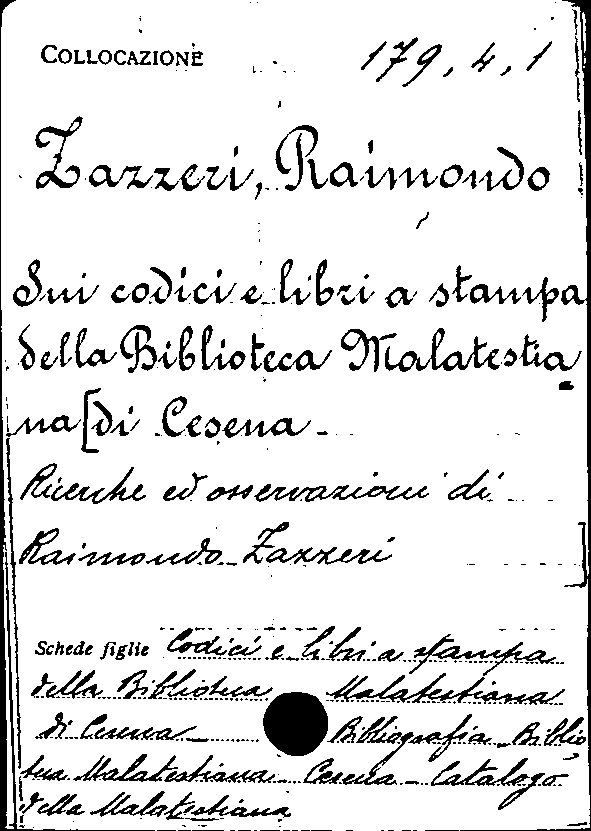 COLLOCAZIONE 179, 4, 1
Zazzeri, Raimondo
Sui codici e libri a stampa
della Biblioteca Malatestia-
na [di Cesena -
Ricerche ed osservazioni di
Raimondo Zazzeri ]
Schede figlie Codici e libri a stampa
della Biblioteca Malatestiana
di Cesena - Bibliografia - Biblio-
teca Malatestiana - Cesena - Catalogo
della Malatestiana